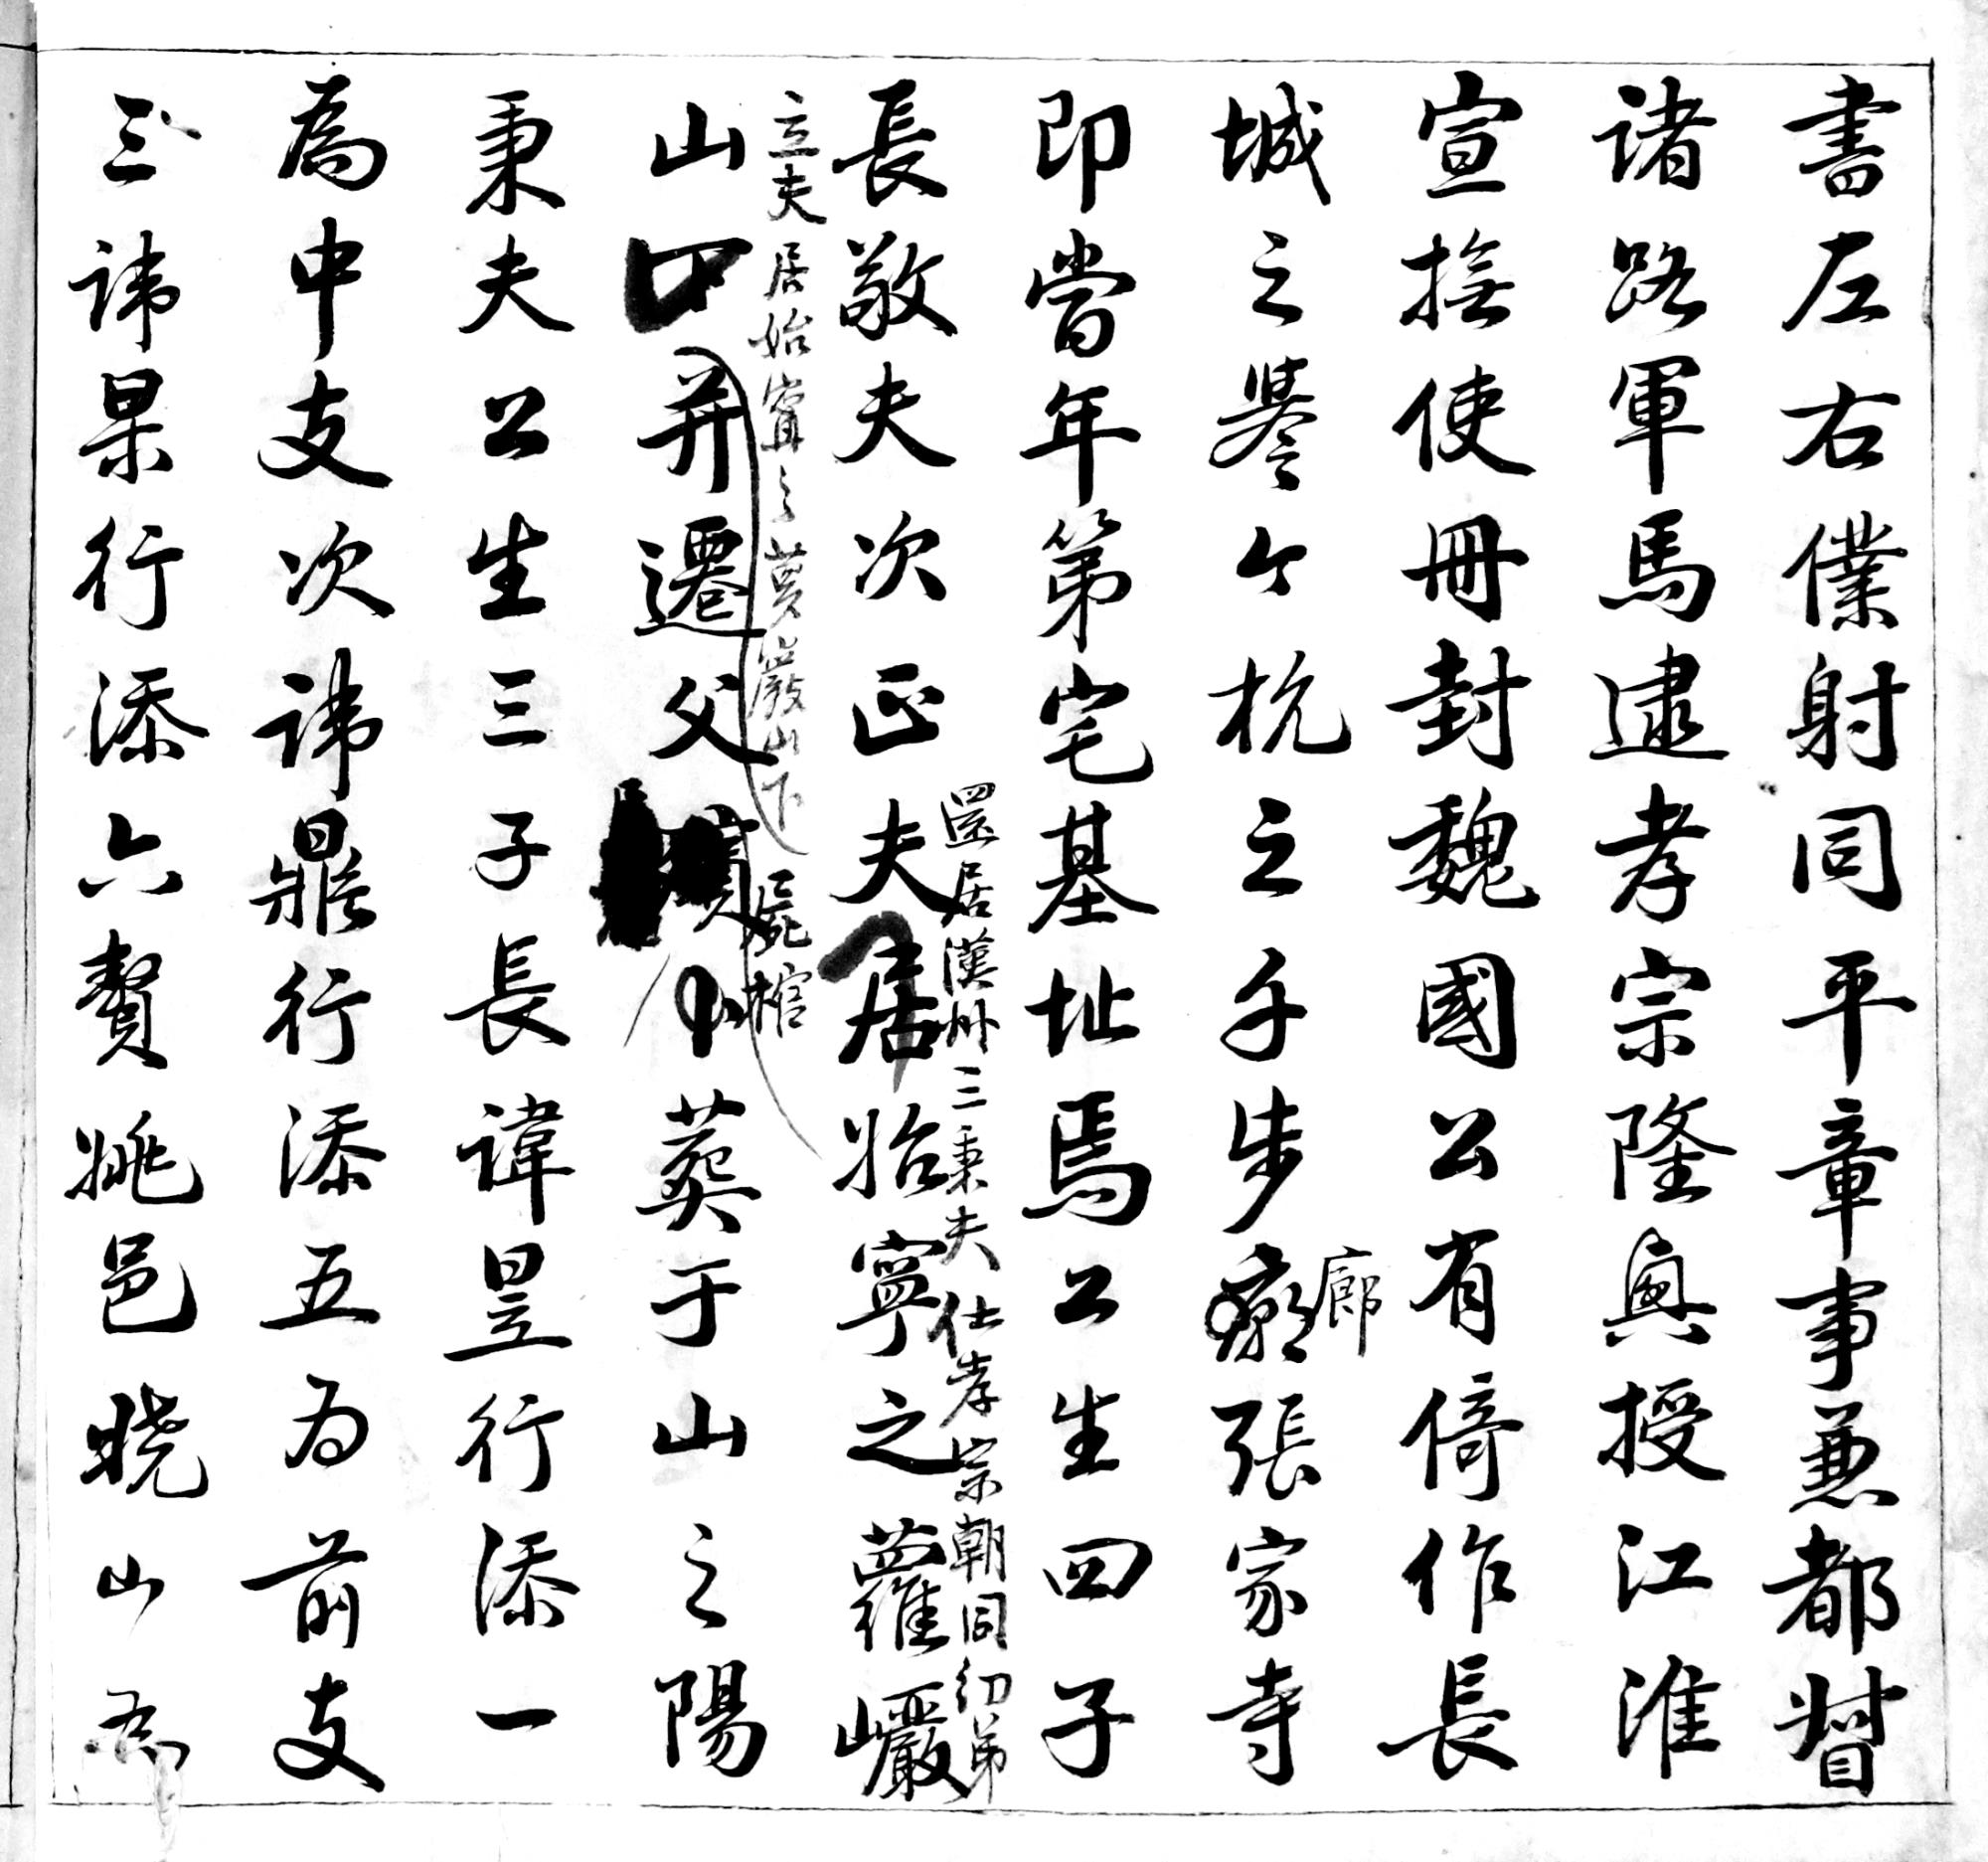 書左右僕射同平章事兼都督
諸路軍馬逮孝宗隆興授江淮
宣撫使冊封魏國公有倚作長
城之譽今杭之千步廊張家寺
廊
即當年第宅基址焉公生四子
還居漢州三秉夫仕孝宗朝同幼弟
長敬夫次正夫居始寧之蘿巖
立夫居始寧之蘿巖山下
屍棺
山并遷父葬于山之陽
秉夫公生三子長諱昱行添一
為中支次諱鼎行添五為前支
三諱杲行添六贅姚邑曉山為